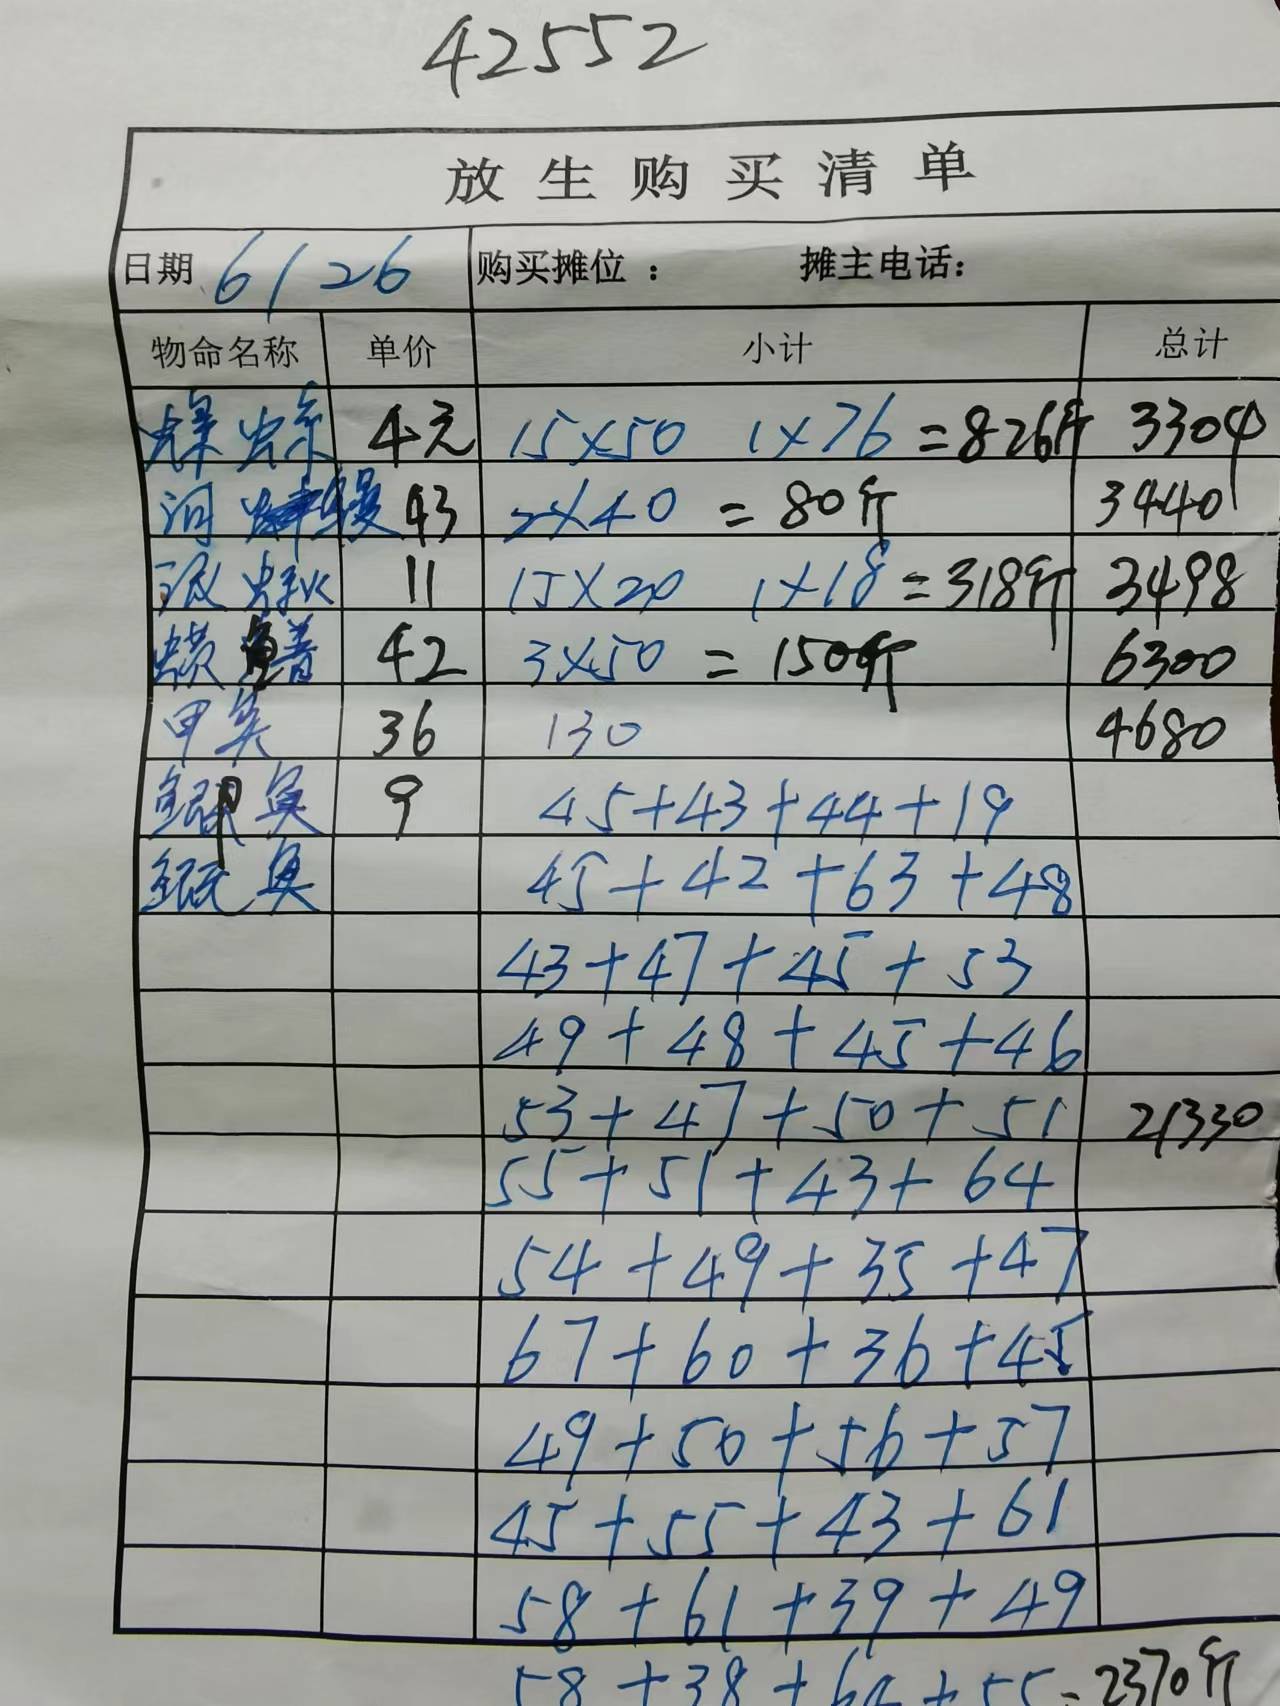 42552
放生购买清单
日期 6/26 购买摊位： 摊主电话:
物命名称 单价 小计 总计
螺蛳 4元 15×50 1×76 =826斤 3304
河 43 2×40 = 80斤 3440
泥鳅 11 15×20 1×18 =318斤 3498
42 3×50 = 150斤 6300
甲鱼 36 130 4680
鲫鱼 9 45+43+44+19
鲲鱼 45+42+63+48
43+47+45+53
49+48+45+46
53+47+50+51 21330
55+51+43+64
54+49+35+47
67+60+36+45
49+50+56+57
45+55+43+61
58+61+39+49
58+38+64+55=2370斤